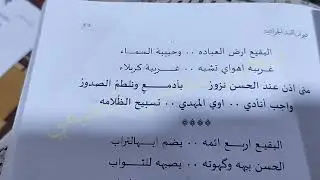 البقيع ارض العباده .. وحبيبة السماء
غريبه اهواي تشبه .. غريبة كربلاء
متى أذن عند الحسن نزور بأدمع ونلطم الصدور
واجب أنادي .. اوي المهدي .. تسبيح الظلامه
****
البقيع اربع ائمه .. يضم ابهالتراب
الحسن بيه وكهوته .. يصبه للتواب